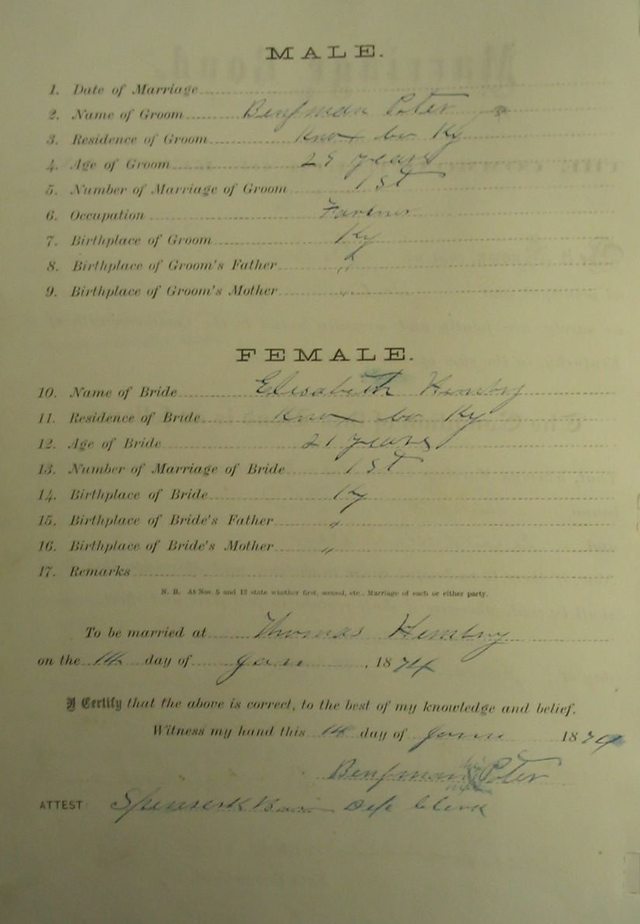 MALE.
1. Date of Marriage
2. Name of Groom Benjman Poter
3. Residence of Groom Knox Co Ky
4. Age of Groom 25 years
5. Number of Marriage of Groom 1st
6. Occupation Farmer
7. Birthplace of Groom Ky
8. Birthplace of Groom's Father "
9. Birthplace of Groom's Mother "
FEMALE.
10. Name of Bride Elisabeth
11. Residence of Bride Knox Co Ky
12. Age of Bride 21 years
13. Number of Marriage of Bride 1st
14. Birthplace of Bride Ky
15. Birthplace of Bride's Father "
16. Birthplace of Bride's Mother "
17. Remarks
N. B. At Nos. 5 and 13 state whether first, second, etc., Marriage of each or either party.
To be married at Thomas
on the 14 day of Jan, 1874
I Certify that the above is correct, to the best of my knowledge and belief.
Witness my hand this 14 day of Jan 1874
Benjman Poter
ATTEST Dep Clerk